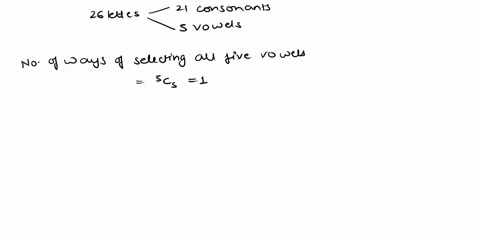 26 lettes 21 consonants
5 vowels
No. of ways of selecting all five vowels
= ⁵C₅ = 1